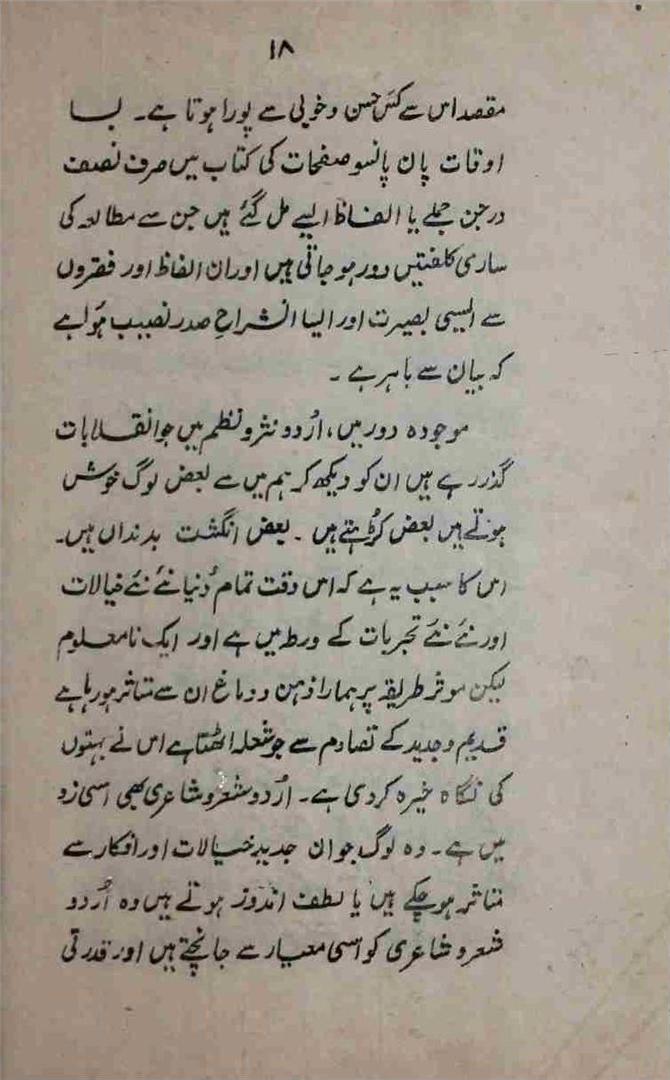 ۱۸
مقصد اس سے کس حسن و خوبی سے پورا ہوتا ہے۔ بسا
اوقات پان پانسو صفحات کی کتاب میں صرف نصف
درجن جملے یا الفاظ ایسے مل گئے ہیں جن سے مطالعہ کی
ساری کلفتیں دور ہو جاتی ہیں اور ان الفاظ اور فقروں
سے ایسی بصیرت اور ایسا انشراحِ صدر نصیب ہوا ہے
کہ بیان سے باہر ہے ۔
موجودہ دور میں، اُردو نثر و نظم میں جو انقلابات
گذر رہے ہیں ان کو دیکھ کر ہم میں سے بعض لوگ خوش
ہوتے ہیں بعض کڑھتے ہیں ۔ بعض انگشت بدنداں ہیں۔
اس کا سبب یہ ہے کہ اس وقت تمام دُنیا نئے نئے خیالات
اور نئے نئے تجربات کے ورطہ میں ہے اور ایک نامعلوم
لیکن موثر طریقہ پر ہمارا ذہن و دماغ ان سے متاثر ہو رہا ہے
قدیم و جدید کے تصادم سے جو شعلہ اٹھتا ہے اس نے بہتوں
کی نگاہ خیرہ کر دی ہے۔ اُردو شعر و شاعری بھی اسی زد
میں ہے۔ وہ لوگ جو ان جدید خیالات اور افکار سے
متاثر ہو چکے ہیں یا لطف اندوز ہوتے ہیں وہ اُردو
شعر و شاعری کو اسی معیار سے جانچتے ہیں اور قدرتی